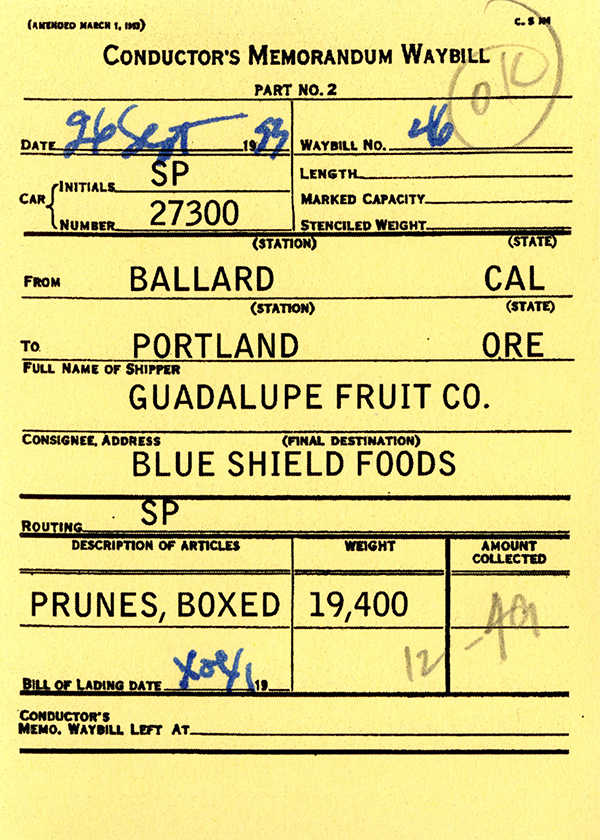 (AMENDED MARCH 1, 1953) C. S
CONDUCTOR'S MEMORANDUM WAYBILL
PART NO. 2
OK
DATE 26 Sept 1953 WAYBILL NO. 46
CAR { INITIALS SP
NUMBER 27300
LENGTH
MARKED CAPACITY
STENCILED WEIGHT
(STATION) (STATE)
FROM BALLARD CAL
(STATION) (STATE)
TO PORTLAND ORE
FULL NAME OF SHIPPER
GUADALUPE FRUIT CO.
CONSIGNEE, ADDRESS (FINAL DESTINATION)
BLUE SHIELD FOODS
ROUTING SP
DESCRIPTION OF ARTICLES WEIGHT AMOUNT COLLECTED
PRUNES, BOXED 19,400
12
BILL OF LADING DATE 19
CONDUCTOR'S
MEMO. WAYBILL LEFT AT